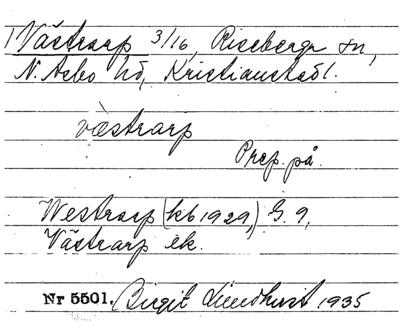 Västrarp 3/16, Riseberga sn,
N. Åsbo hd, Kristianstads l.
västrarp
Prep. på.
Westrarp (kb 1929,) G. 9,
Västrarp ek.
Nr 5501. Birgit Lindhust 1935